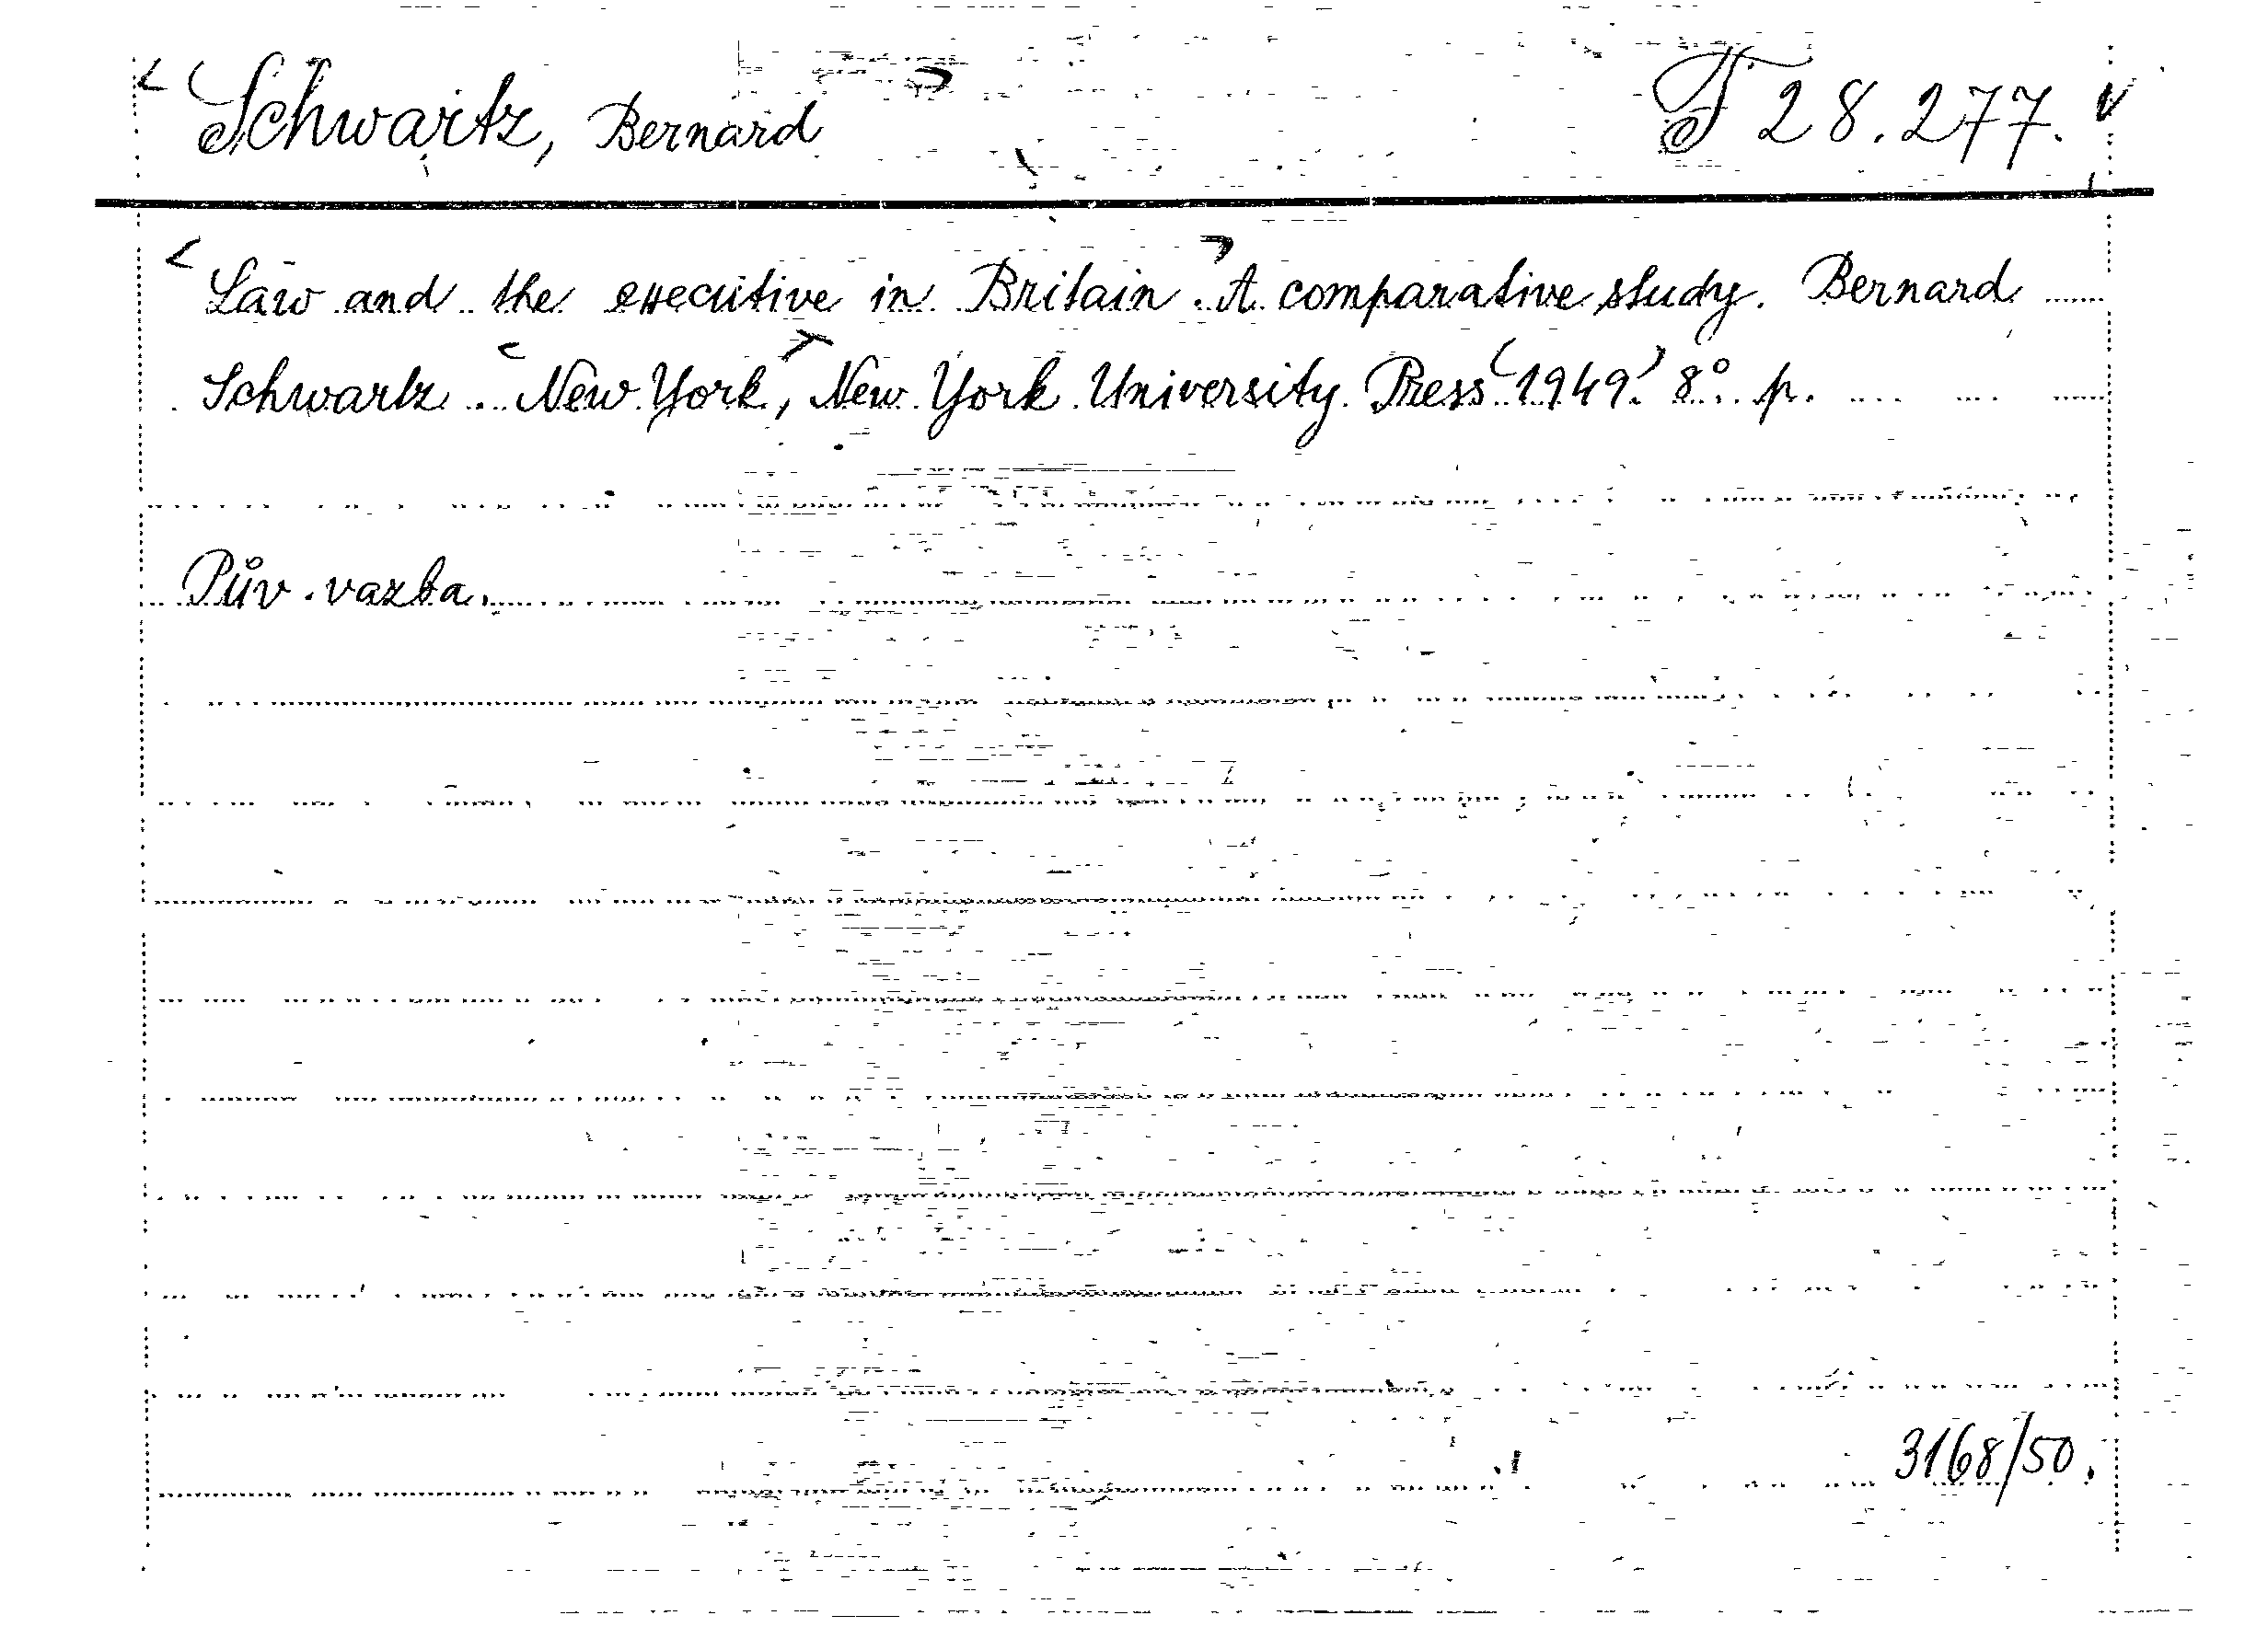 Schwartz, Bernard F 28.277.
Law and the executive in Britain. A comparative study. Bernard
Schwartz. New York, New York University Press 1949. 8° p.
Pův. vazba.
3168/50.